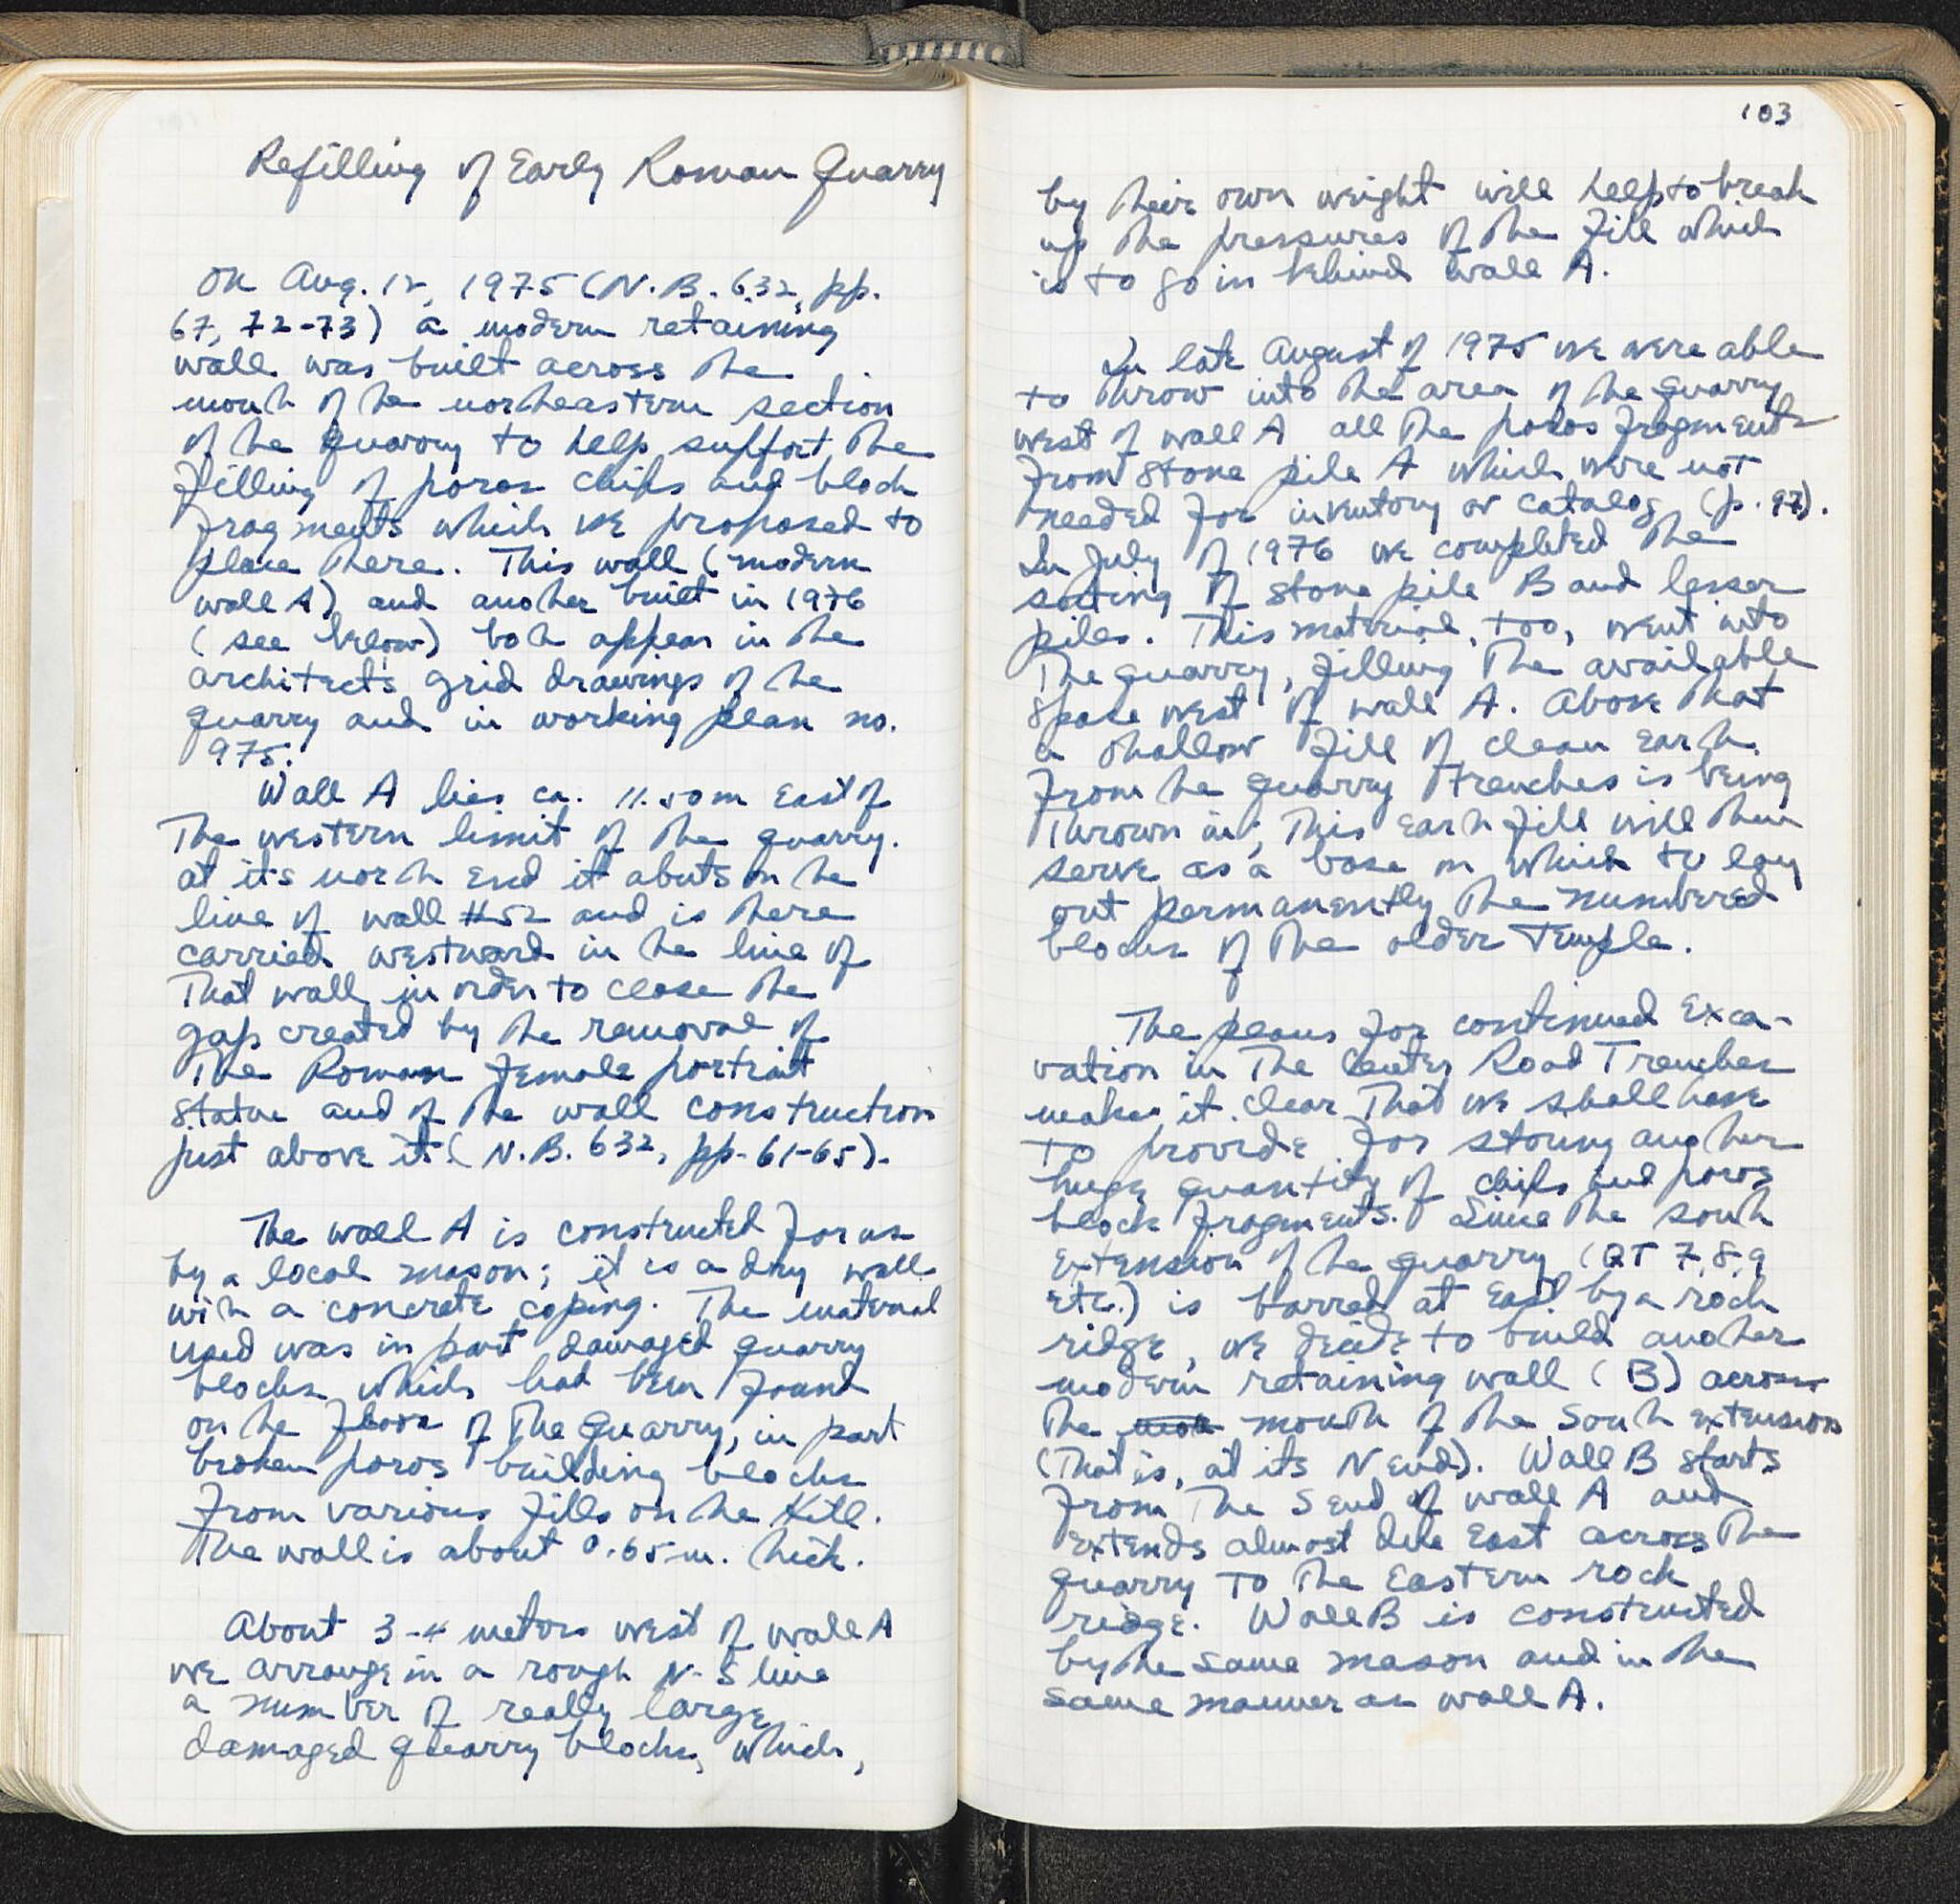 Refilling of Early Roman Quarry
On Aug. 12, 1975 (N.B. 632, pp.
67, 72-73) a modern retaining
wall was built across the
mouth of the northeastern section
of the quarry to help support the
filling of poros chips and block
fragments which we proposed to
place there. This wall (modern
wall A) and another built in 1976
(see below) both appear in the
architects grid drawings of the
quarry and in working plan no.
975.
Wall A lies ca. 11.50 m East of
The western limit of the quarry.
at its north End it abuts on the
line of wall #52 and is there
carried westward in the line of
That wall in order to close the
gap created by the removal of
The Roman female portrait
statue and of the wall construction
just above it (N.B. 632, pp. 61-65).
The wall A is constructed for us
by a local mason; it is a dry wall
with a concrete coping. The material
used was in part damaged quarry
blocks which had been found
on the floor of The Quarry, in part
broken poros building blocks
from various fills on the Hill.
The wall is about 0.65 m. thick.
About 3-4 meters west of wall A
we arrange in a rough N-S line
a number of really large
damaged quarry blocks, which,
103
by their own weight will help to break
up the pressures of the fill which
is to go in behind wall A.
In late August of 1975 we were able
to throw into the area of the quarry
west of wall A all the poros fragments
from stone pile A which were not
needed for inventory or catalog (p. 97).
In July of 1976 we completed the
sorting of stone pile B and lesser
piles. This material, too, went into
The quarry, filling The available
space west of wall A. Above that
a shallow fill of clean earth
from the quarry trenches is being
thrown in; This earth fill will then
serve as a base on which to lay
out permanently the numbered
blocks of the older Temple.
The plans for continued Exca-
vation in The Center Road Trenches
makes it clear That we shall have
to provide for storing another
huge quantity of chips and poros
block fragments. Since the south
extension of the quarry (QT 7, 8, 9
etc.) is barred at East by a rock
ridge, we decide to build another
modern retaining wall (B) across
the mouth of the South extension
(That is, at its N end). Wall B starts
from The S end of wall A and
extends almost due East across The
quarry to The Eastern rock
ridge. Wall B is constructed
by the same mason and in the
same manner as wall A.